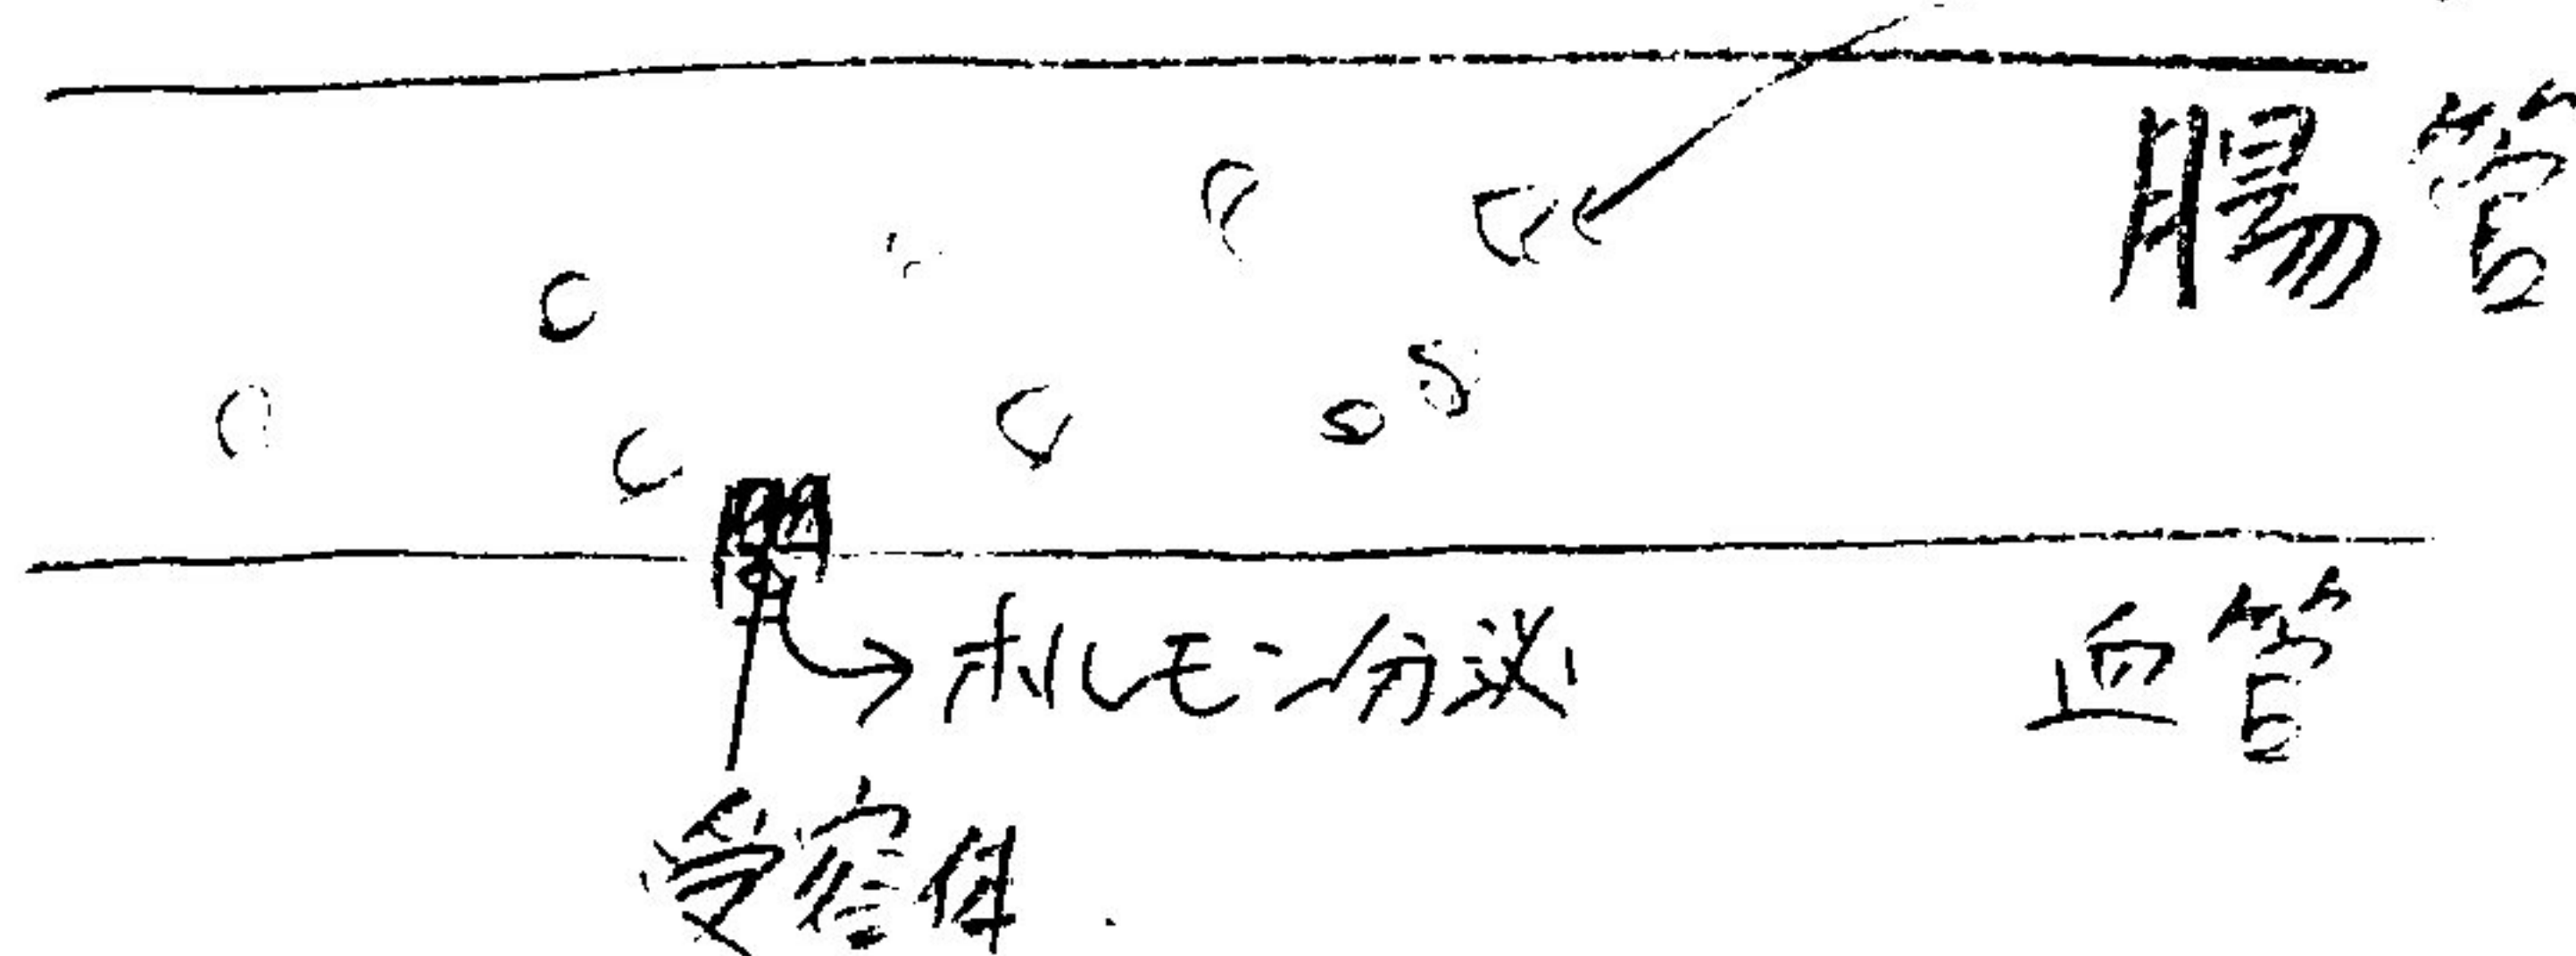 腸管
ホルモン分泌
血管
受容体